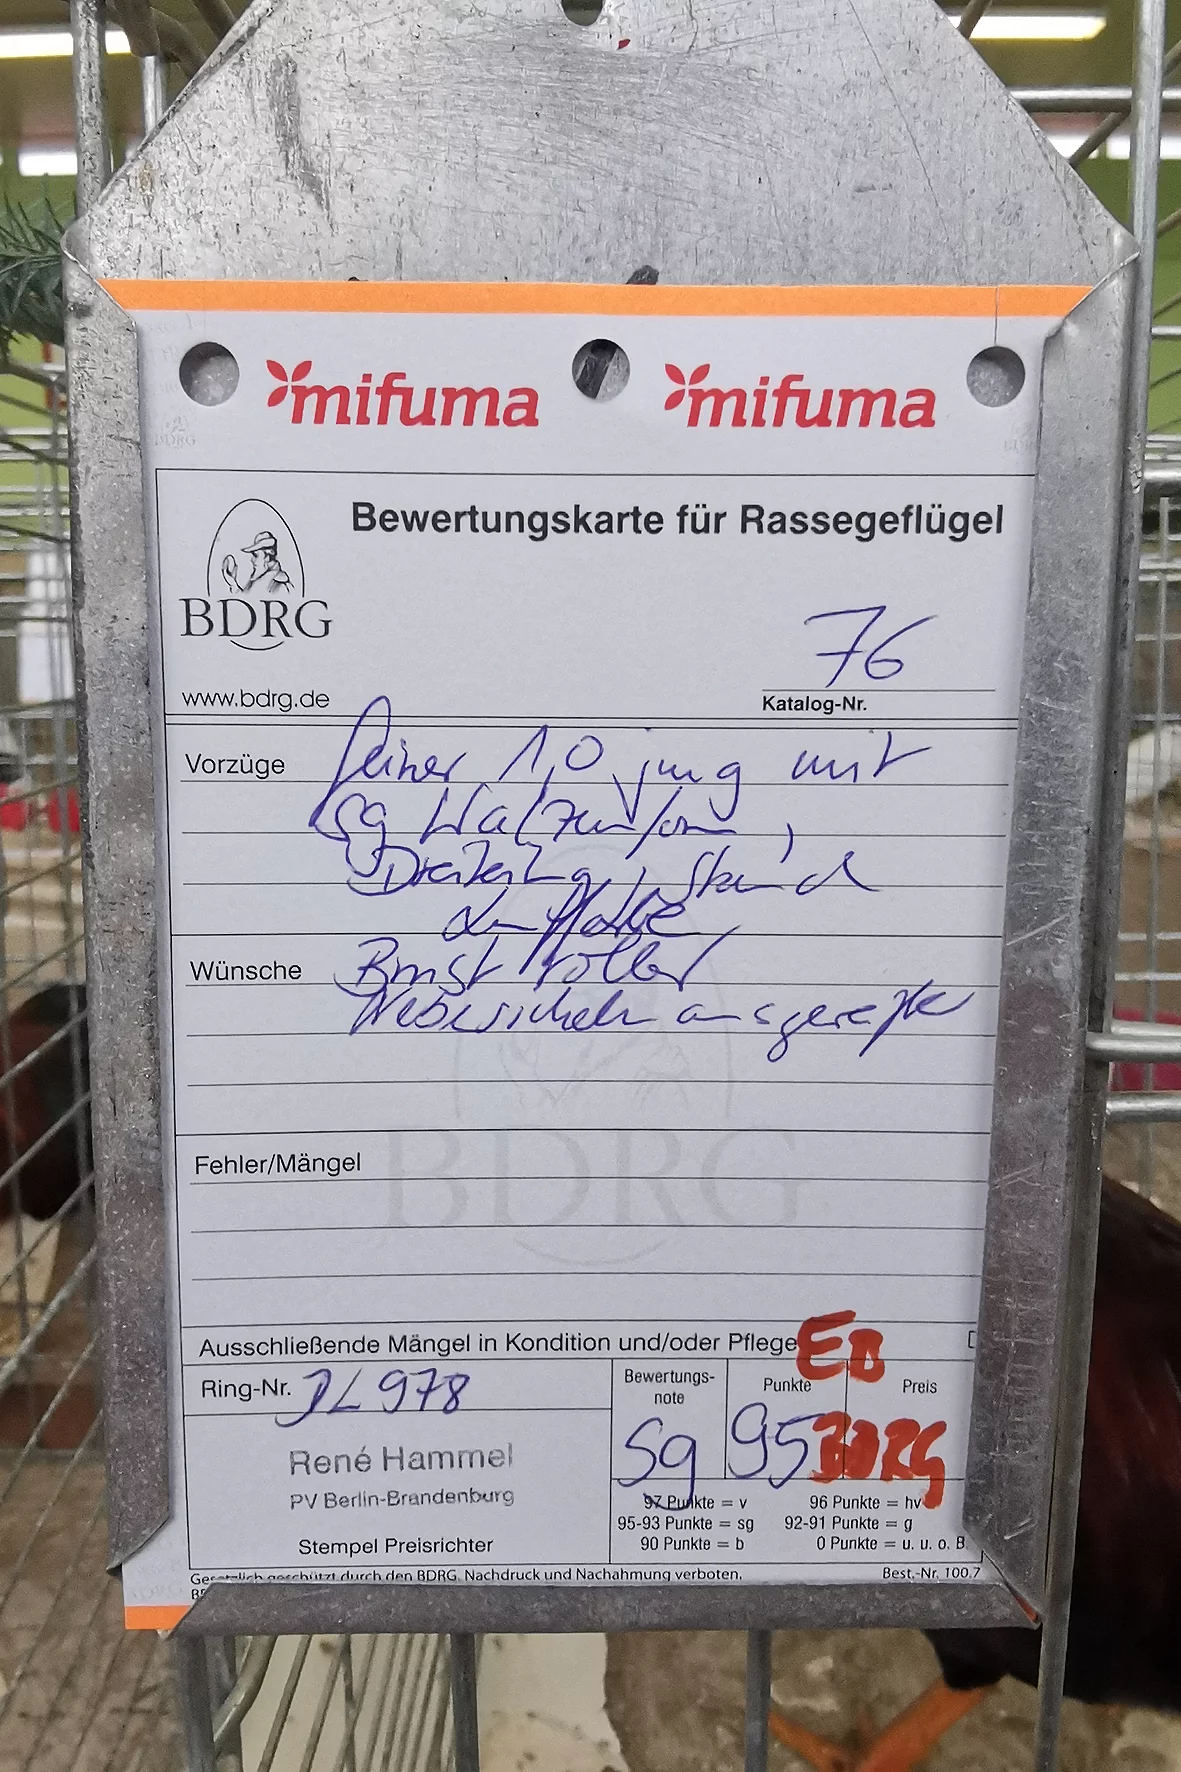 mifuma mifuma
Bewertungskarte für Rassegeflügel
BDRG
www.bdrg.de
76
Katalog-Nr.
Vorzüge feiner 1,0 jung mit
sg Walzenform,
Stand
Wünsche Brust voller
Nebensicheln ausgereifter
BDRG
Fehler/Mängel
Ausschließende Mängel in Kondition und/oder Pflege
EB
Ring-Nr. DL 978
Bewertungs-
note
Punkte
Preis
sg 95 BDRG
René Hammel
PV Berlin-Brandenburg
Stempel Preisrichter
97 Punkte = v 96 Punkte = hv
95-93 Punkte = sg 92-91 Punkte = g
90 Punkte = b 0 Punkte = u. u. o. B.
Gesetzlich geschützt durch den BDRG. Nachdruck und Nachahmung verboten. Best.-Nr. 100.7